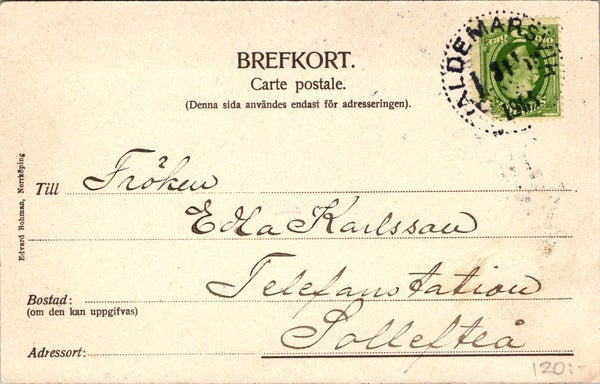 BREFKORT.
Carte postale.
(Denna sida användes endast för adresseringen).
VALDEMARSVIK
1
Edvard Bohman, Norrköping
Till Fröken
Edla Karlsson
Telefonstation
Bostad:
(om den kan uppgifvas)
Sollefteå
Adressort:
120:-